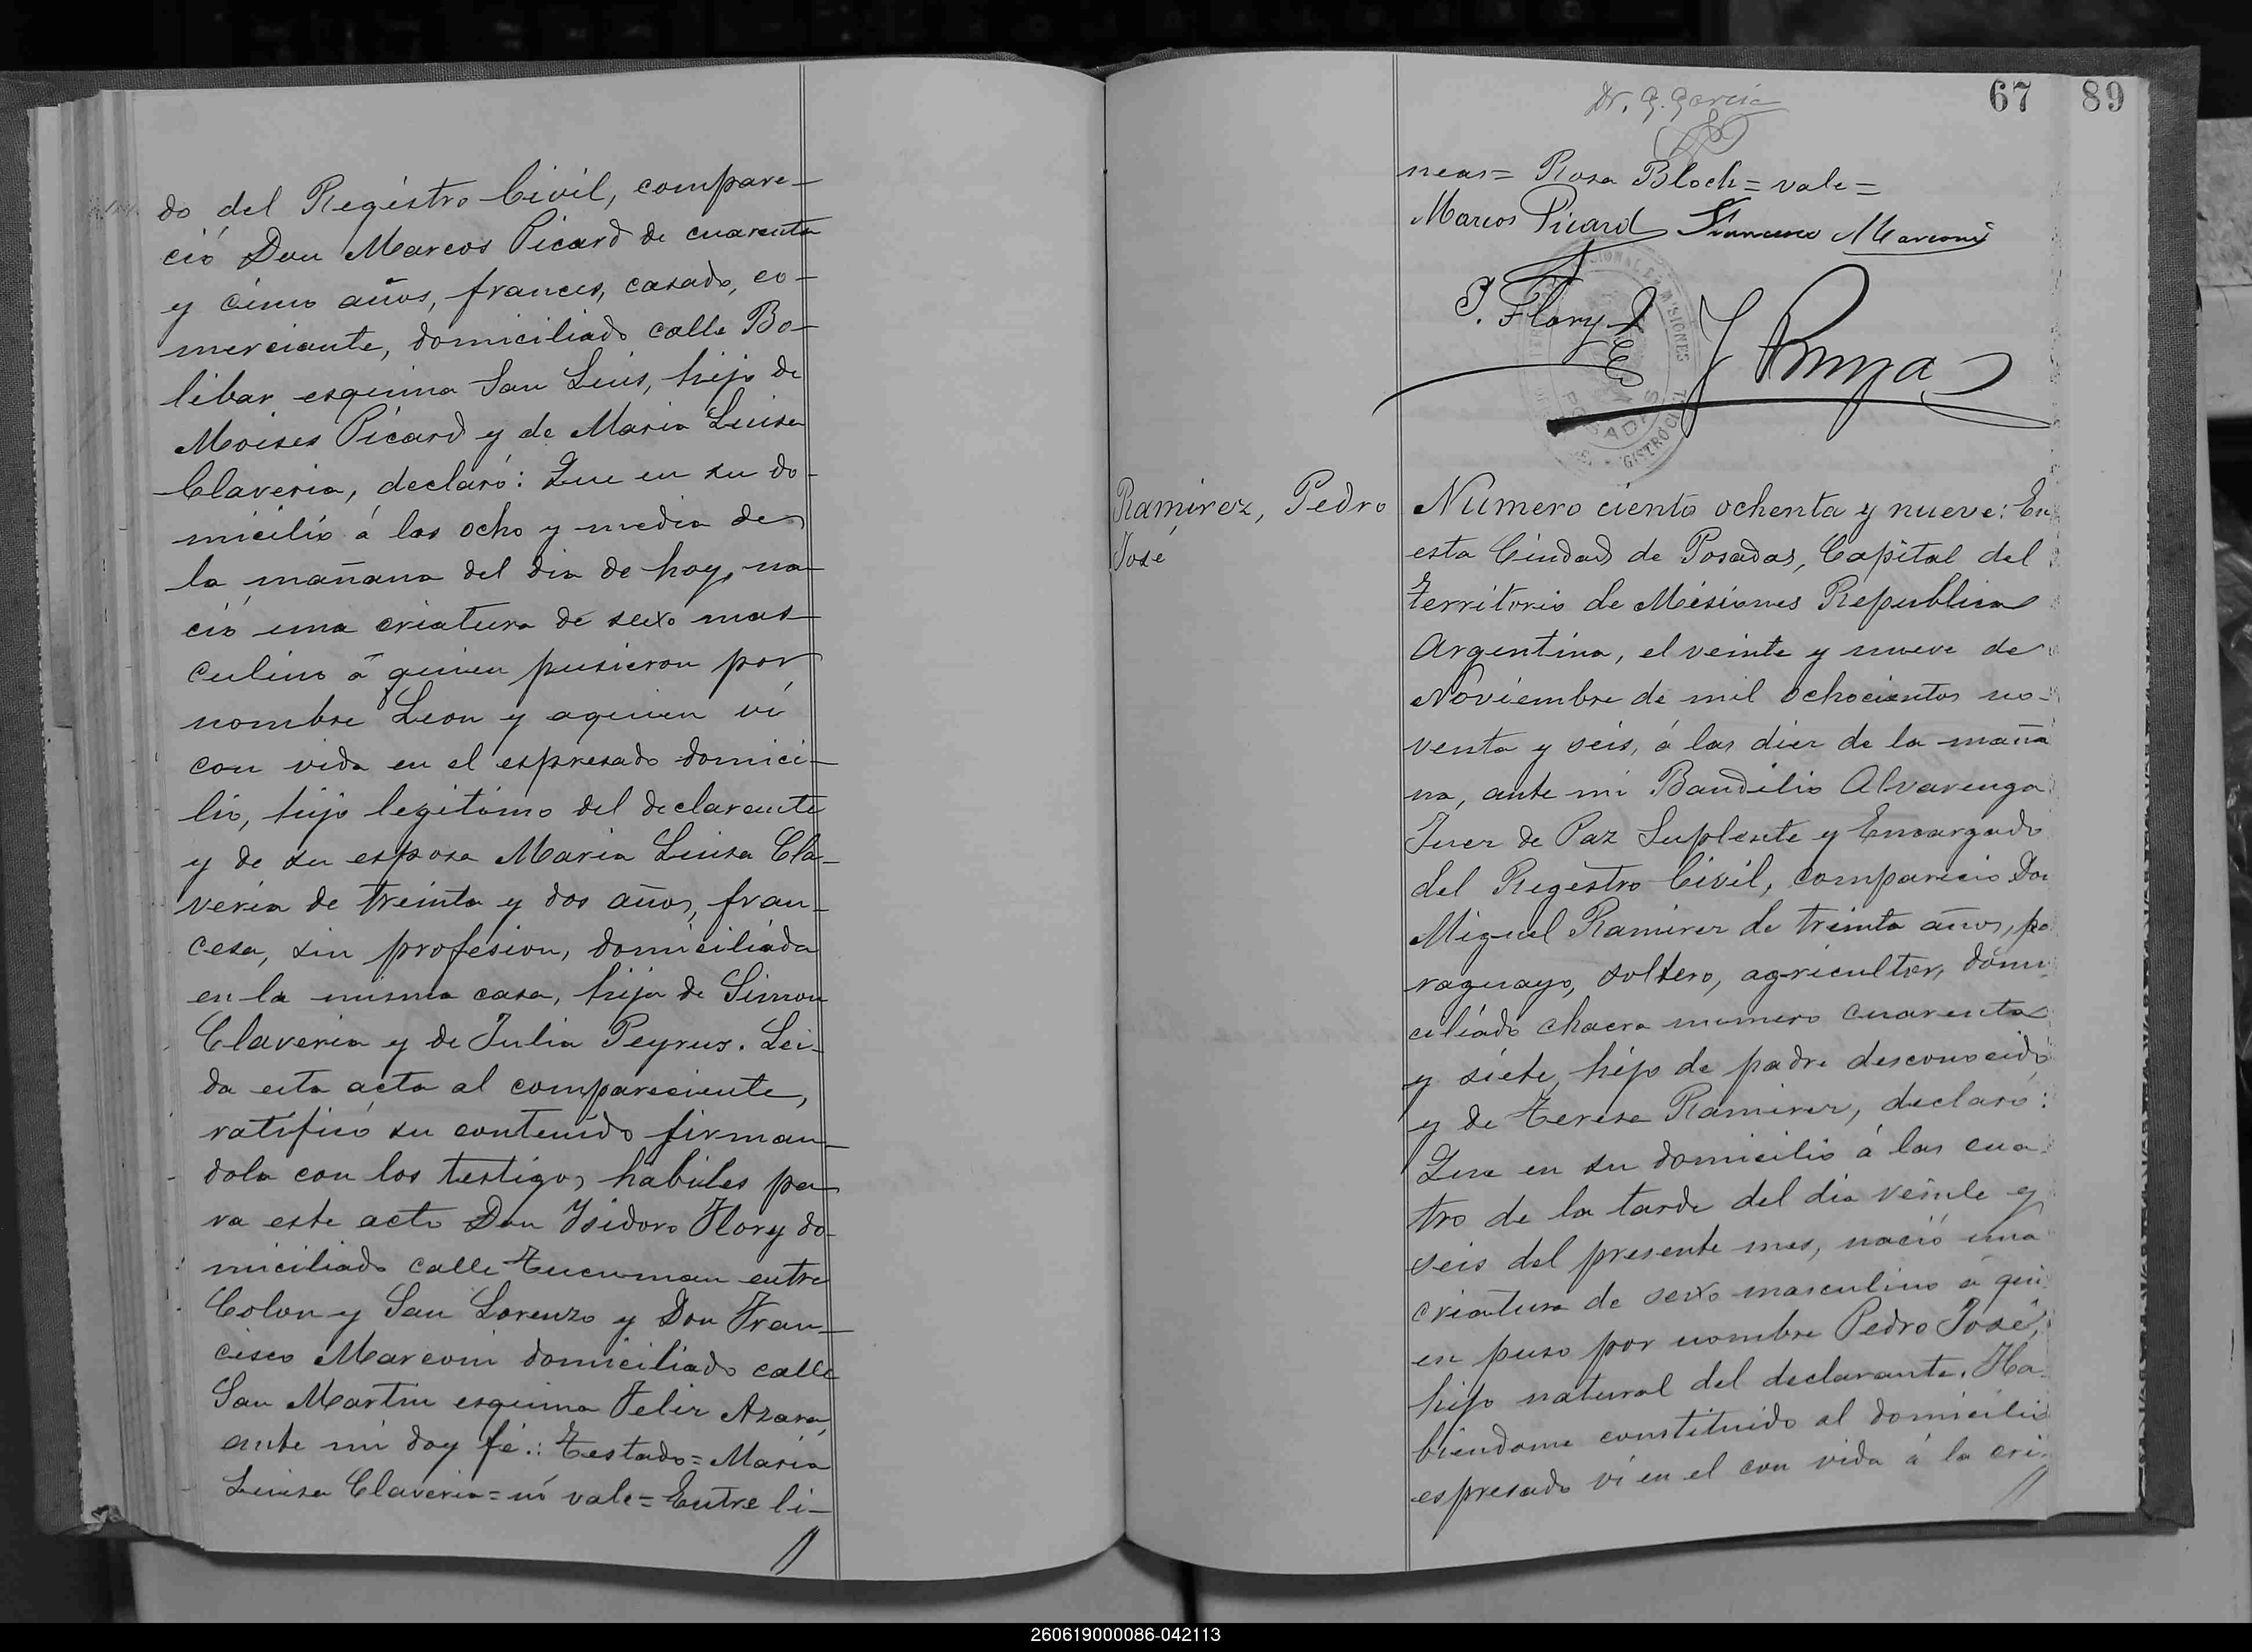 do del Registro Civil, compare-
ció Don Marcos Picard de cuarenta
y cinco años, frances, casado, co-
merciante, domiciliado calle Bo-
libar esquina San Luis, hijo de
Moises Picard y de Maria Luisa
Claveria, declaró: Que en su do-
micilio á las ocho y media de
la mañana del dia de hoy, na-
ció una criatura de sexo mas-
culino á quien pusieron por
nombre Leon y aquien ví
con vida en el espresado domici-
lio, hijo legitimo del declarante
y de su esposa Maria Luisa Cla-
veria de treinta y dos años, fran-
cesa, sin profesion, domiciliada
en la misma casa, hija de Simon
Claveria y de Julia Peyrus. Lei-
da esta acta al compareciente,
ratificó su contenido firman-
dola con los testigos habiles pa-
ra este acto Don Ysidoro Flory do-
miciliado calle Tucuman entre
Colon y San Lorenzo y Don Fran-
cisco Marconi domiciliado calle
San Martin esquina Felix Azara,
ante mi doy fé.: Testado= Maria
Luisa Claveria= nó vale= Entre li-
67 89
Dr. G. Garcia
neas= Rosa Bloch= vale=
Marcos Picard Francisco Marconi
Y. Flory
MISIONES
POSADAS
Ramirez, Pedro
José
Número ciento ochenta y nueve: En
esta Ciudad de Posadas, Capital del
Territorio de Misiones Republica
Argentina, el veinte y nueve de
Noviembre de mil ochocientos no-
venta y seis, á las diez de la maña
na, ante mi Baudilio Alvarenga
Juez de Paz Suplente y Encargado
del Registro Civil, compareció Don
Miguel Ramirez de treinta años, pa
raguayo, soltero, agricultor, domi
ciliado chacra numero cuarenta
y siete, hijo de padre desconocido
y de Teresa Ramirez, declaró:
Que en su domicilio á las cua-
tro de la tarde del dia veinte y
seis del presente mes, nació una
criatura de sexo masculino á qui
en puso por nombre Pedro José,
hijo natural del declarante. Ha-
biendome constituido al domicilio
espresado ví en el con vida á la cri-
260619000086-042113